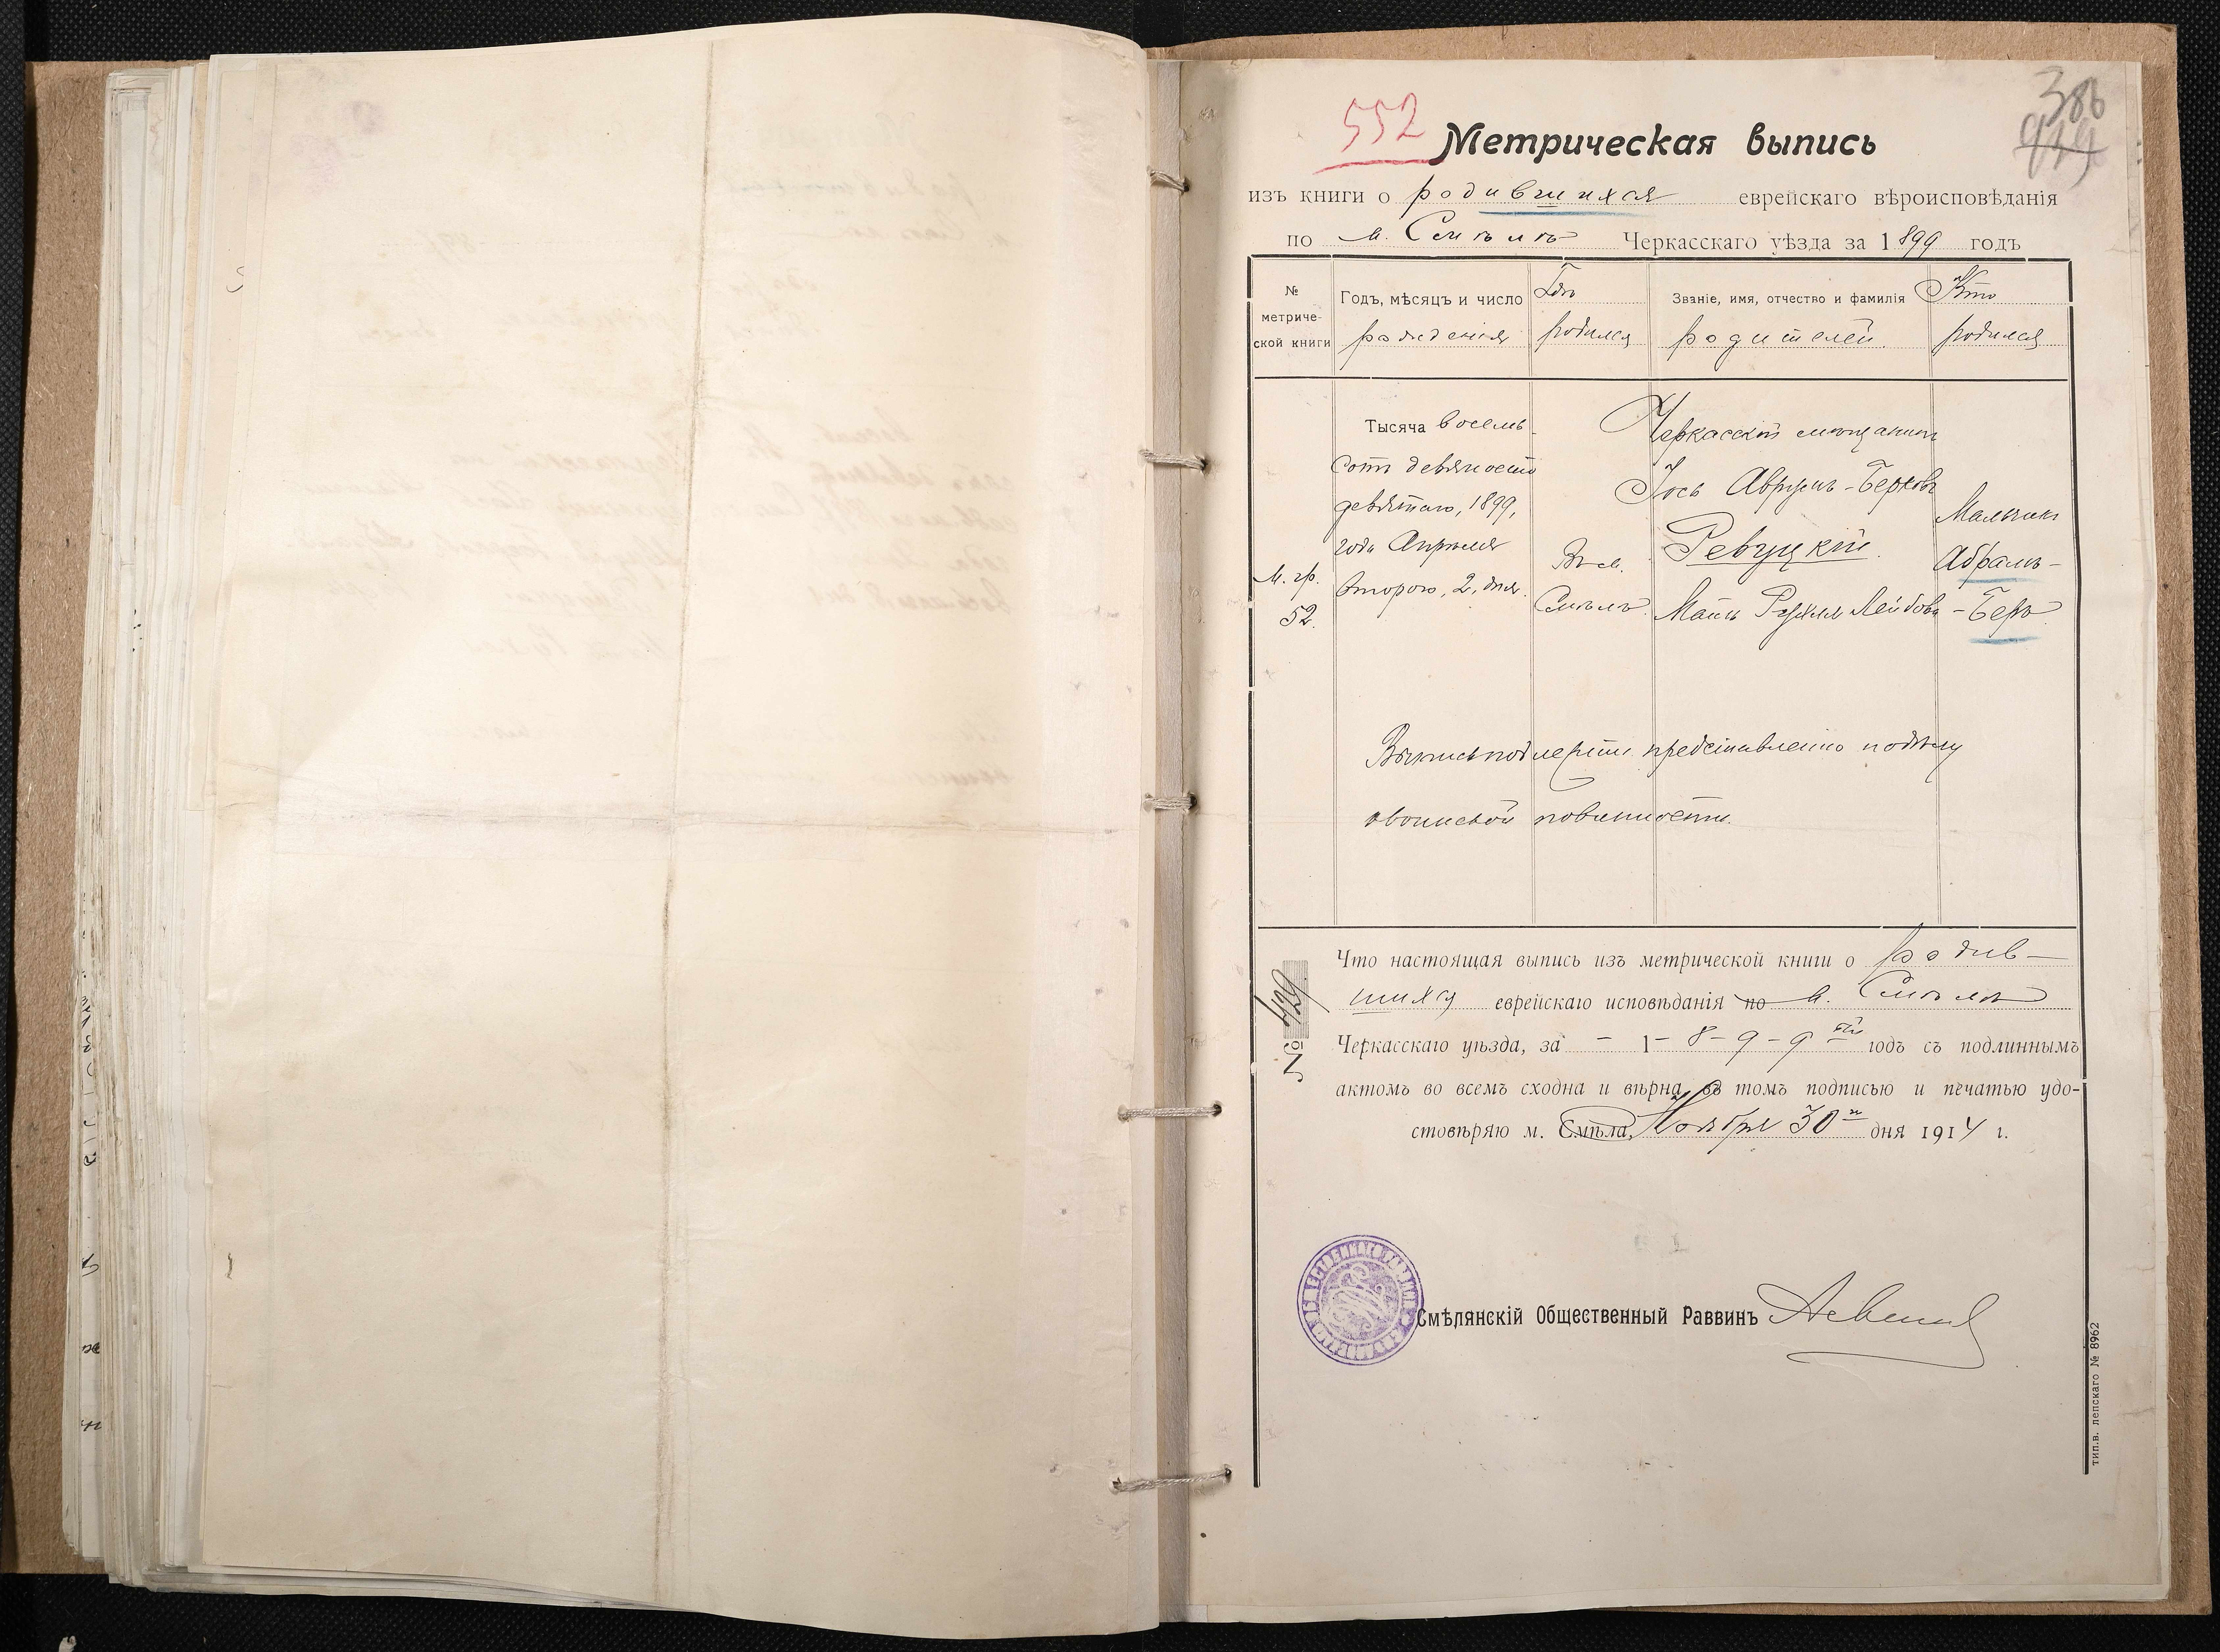 552
386
Метрическая выпись
изъ книги о родившихся еврейскаго вѣроисповѣданія
по м. Смѣлѣ Черкасскаго уѣзда за 1899 годъ
№ метриче-ской книги
Годъ, мѣсяцъ и число рожденія
Гдѣ родился
Званіе, имя, отчество и фамилія родителей.
Кто родился
М. гр.
52.
Тысяча восемь-
сотъ девяносто
девятаго, 1899,
года Апрѣля
второго, 2, дня.
Въ м.
Смѣлѣ.
Черкасскій мѣщанинъ
Іось Аврумъ-Берковъ
Ревуцкій.
Мать Рухля Лейбова
Мальчикъ
Абрамъ-
-Беръ.
Выпись подлежитъ представленію по дѣлу
о воинской повинности.
№ 429
Что настоящая выпись изъ метрической книги о родив-
шихся еврейскаго исповѣданія по м. Смѣлѣ
Черкасскаго уѣзда, за - 1-8-9-9 й годъ съ подлиннымъ
актомъ во всемъ сходна и вѣрна, въ томъ подписью и печатью удо-
стовѣряю м. Смѣла, Ноября 30 дня 1914 г.
Смѣлянскій Общественный Раввинъ
тип. в. лепскаго № 8962